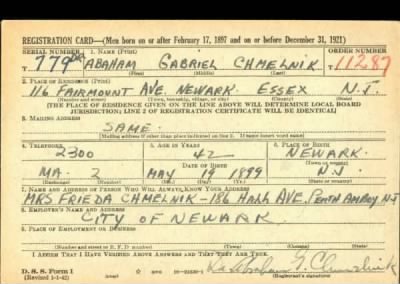 REGISTRATION CARD—(Men born on or after February 17, 1897 and on or before December 31, 1921)
SERIAL NUMBER 1. NAME (Print) ORDER NUMBER
T 779 ABAHAM GABRIEL CHMELNIK T 11287
(First) (Middle) (Last)
2. PLACE OF RESIDENCE (Print)
116 FAIRMOUNT AVE. NEWARK. ESSEX N.J.
(Number and street) (Town, township, village, or city) (County) (State)
[THE PLACE OF RESIDENCE GIVEN ON THE LINE ABOVE WILL DETERMINE LOCAL BOARD
JURISDICTION; LINE 2 OF REGISTRATION CERTIFICATE WILL BE IDENTICAL]
3. MAILING ADDRESS
SAME.
[Mailing address if other than place indicated on line 2. If same insert word same]
4. TELEPHONE 5. AGE IN YEARS 6. PLACE OF BIRTH
2300 42 NEWARK.
DATE OF BIRTH (Town or county)
MA. 2 MAY 19 1899 N.J.
(Exchange) (Number) (Mo.) (Day) (Yr.) (State or country)
7. NAME AND ADDRESS OF PERSON WHO WILL ALWAYS KNOW YOUR ADDRESS
MRS FRIEDA CHMELNIK-186 HALL AVE. PERTH AMBOY N.J
8. EMPLOYER'S NAME AND ADDRESS
CITY OF NEWARK
9. PLACE OF EMPLOYMENT OR BUSINESS
(Number and street or R. F. D. number) (Town) (County) (State)
I AFFIRM THAT I HAVE VERIFIED ABOVE ANSWERS AND THAT THEY ARE TRUE.
D. S. S. Form 1
(Revised 1-1-42) (over) Abraham G. Chmelnik
(Registrant's signature)